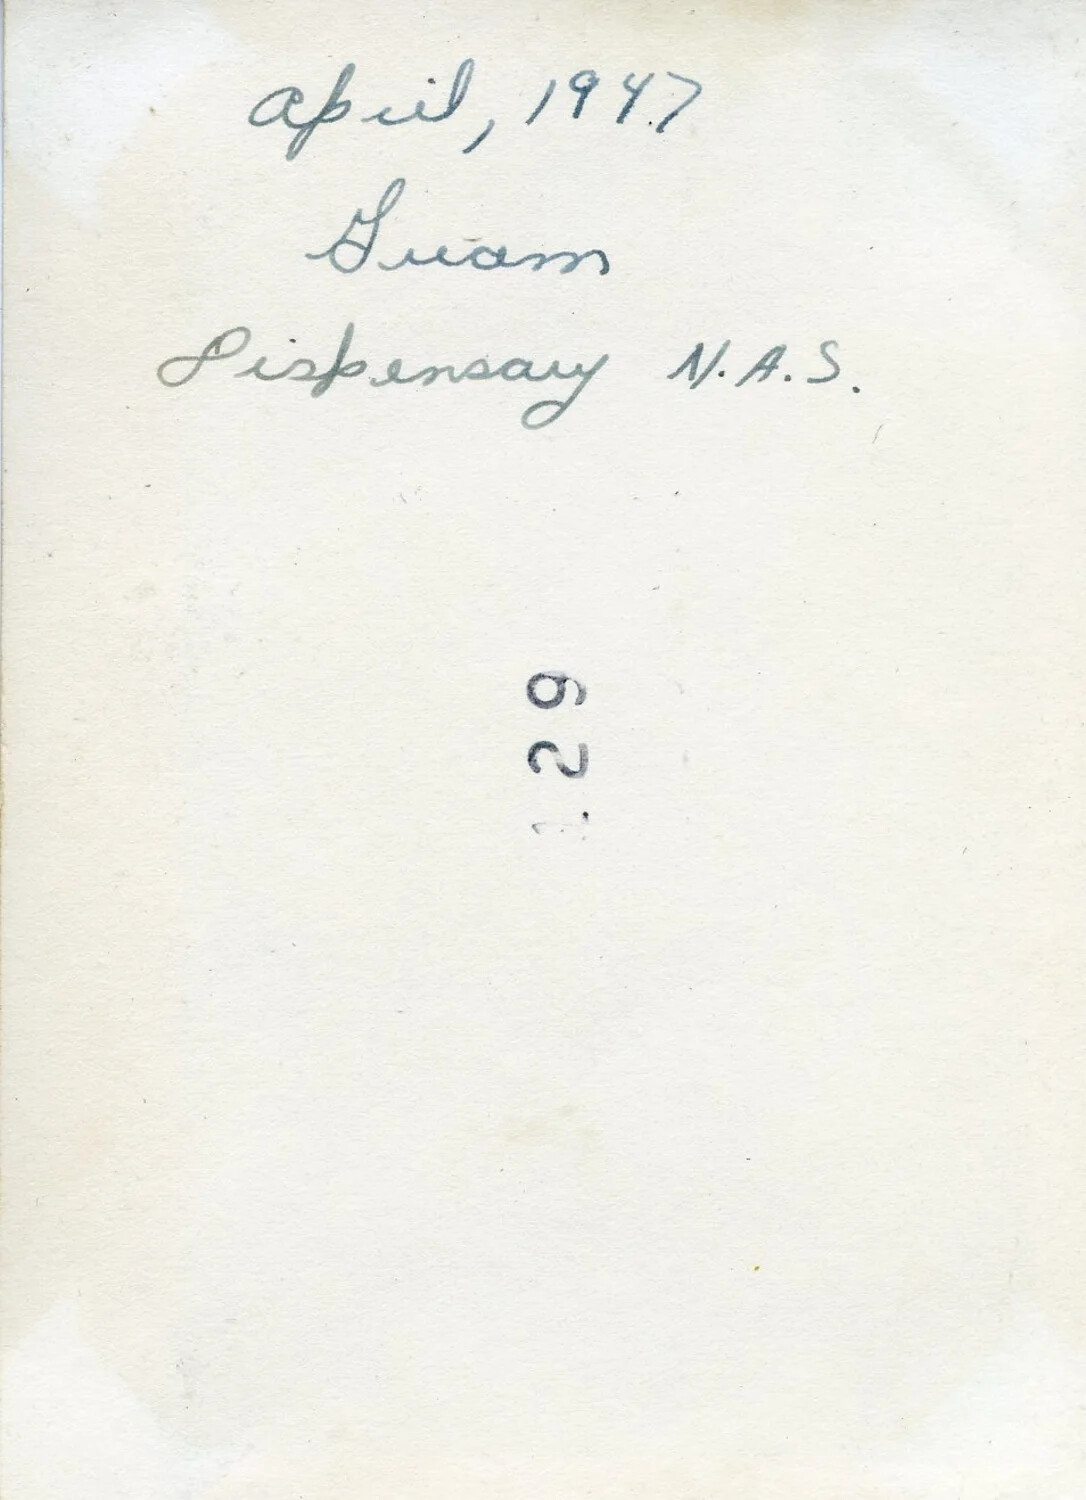 April, 1947
Guam
Dispensary N.A.S.
129